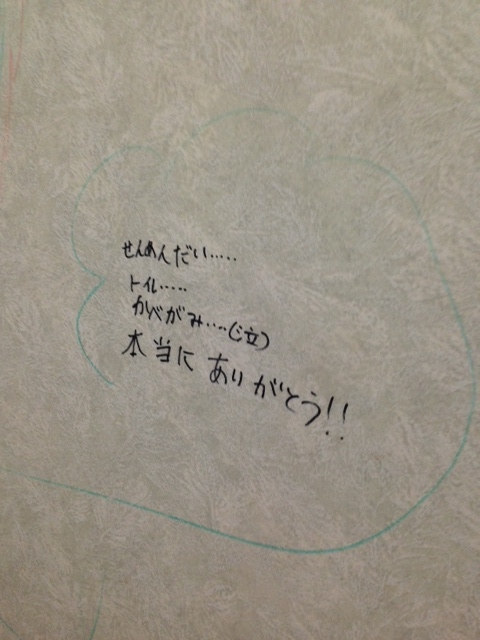 せんめんだい.....
トイレ.....
かべがみ....(泣)
本当に ありがとう!!